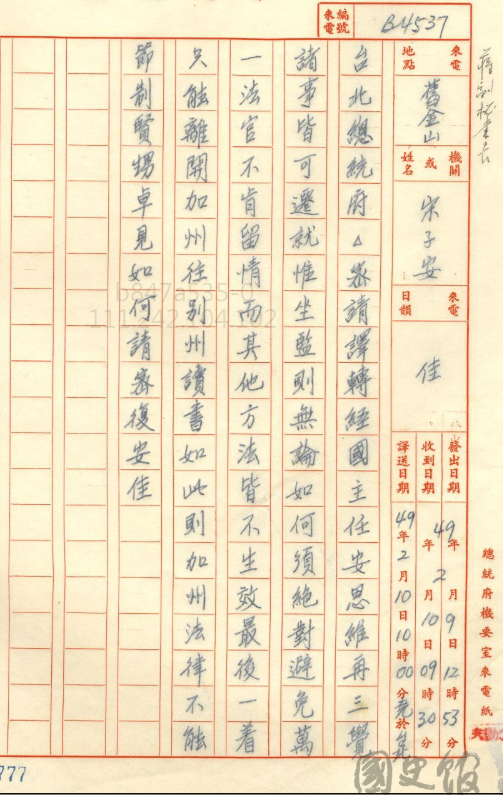 蔣副秘書長
總統府機要室來電紙
編號 來電 B4537
來電地點 舊金山
機關或姓名 宋子安
來電日韻 佳
發出日期 49年2月9日12時53分
收到日期 年2月10日09時30分
譯送日期 49年2月10日10時00分
台北總統府△密請譯轉經國主任安思維再三覺
諸事皆可遷就惟坐監則無論如何須絕對避免萬
一法官不肯留情而其他方法皆不生效最後一着
只能離開加州往別州讀書如此則加州法律不能
節制賢甥卓見如何請密復安佳
國史館